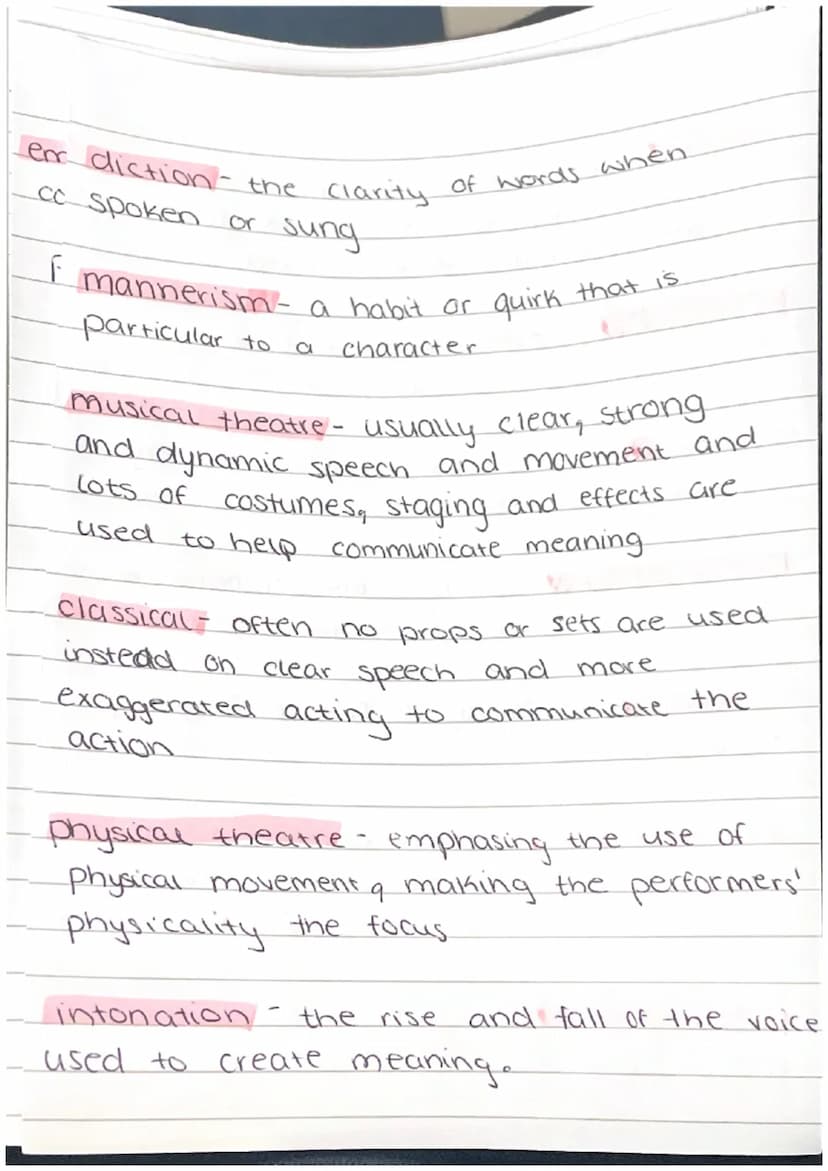 err diction - the clarity of words when
cc spoken or sung
F mannerism - a habit or quirk that is
particular to a character
musical theatre - usually clear, strong
and dynamic speech and movement and
lots of costumes, staging and effects are
used to help communicate meaning
classical - often no props or sets are used
instead on clear speech and more
exaggerated acting to communicate the
action
physical theatre - emphasing the use of
physical movement, making the performers'
physicality the focus
intonation - the rise and fall of the voice
used to create meaning.